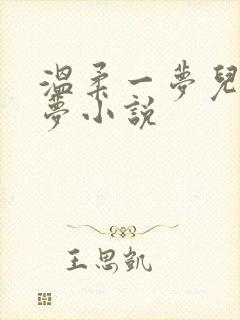 溫柔一夢兒
夢小說
王思凱